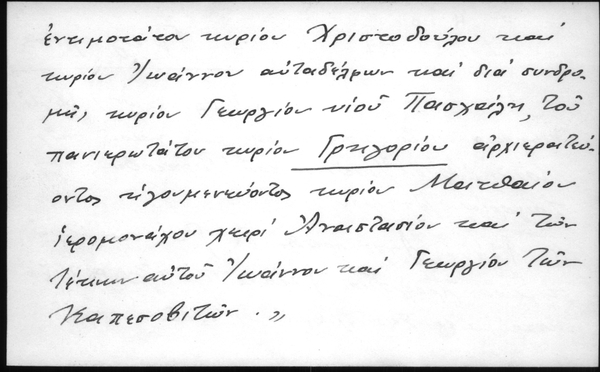 ἐντιμοτάτου κυρίου Χριστοδούλου καὶ
κυρίου Ἰωάννου αὐταδέλφων καὶ διὰ συνδρο-
μῆς κυρίου Γεωργίου υἱοῦ Πασχάλη, τοῦ
πανιερωτάτου κυρίου Γρηγορίου ἀρχιερατεύ-
οντος ἡγουμενεύοντος κυρίου Ματθαίου
ἱερομονάχου χειρὶ Ἀναστασίου καὶ τῶν
τέκνων αὐτοῦ Ἰωάννου καὶ Γεωργίου τῶν
Καπεσοβιτῶν . »